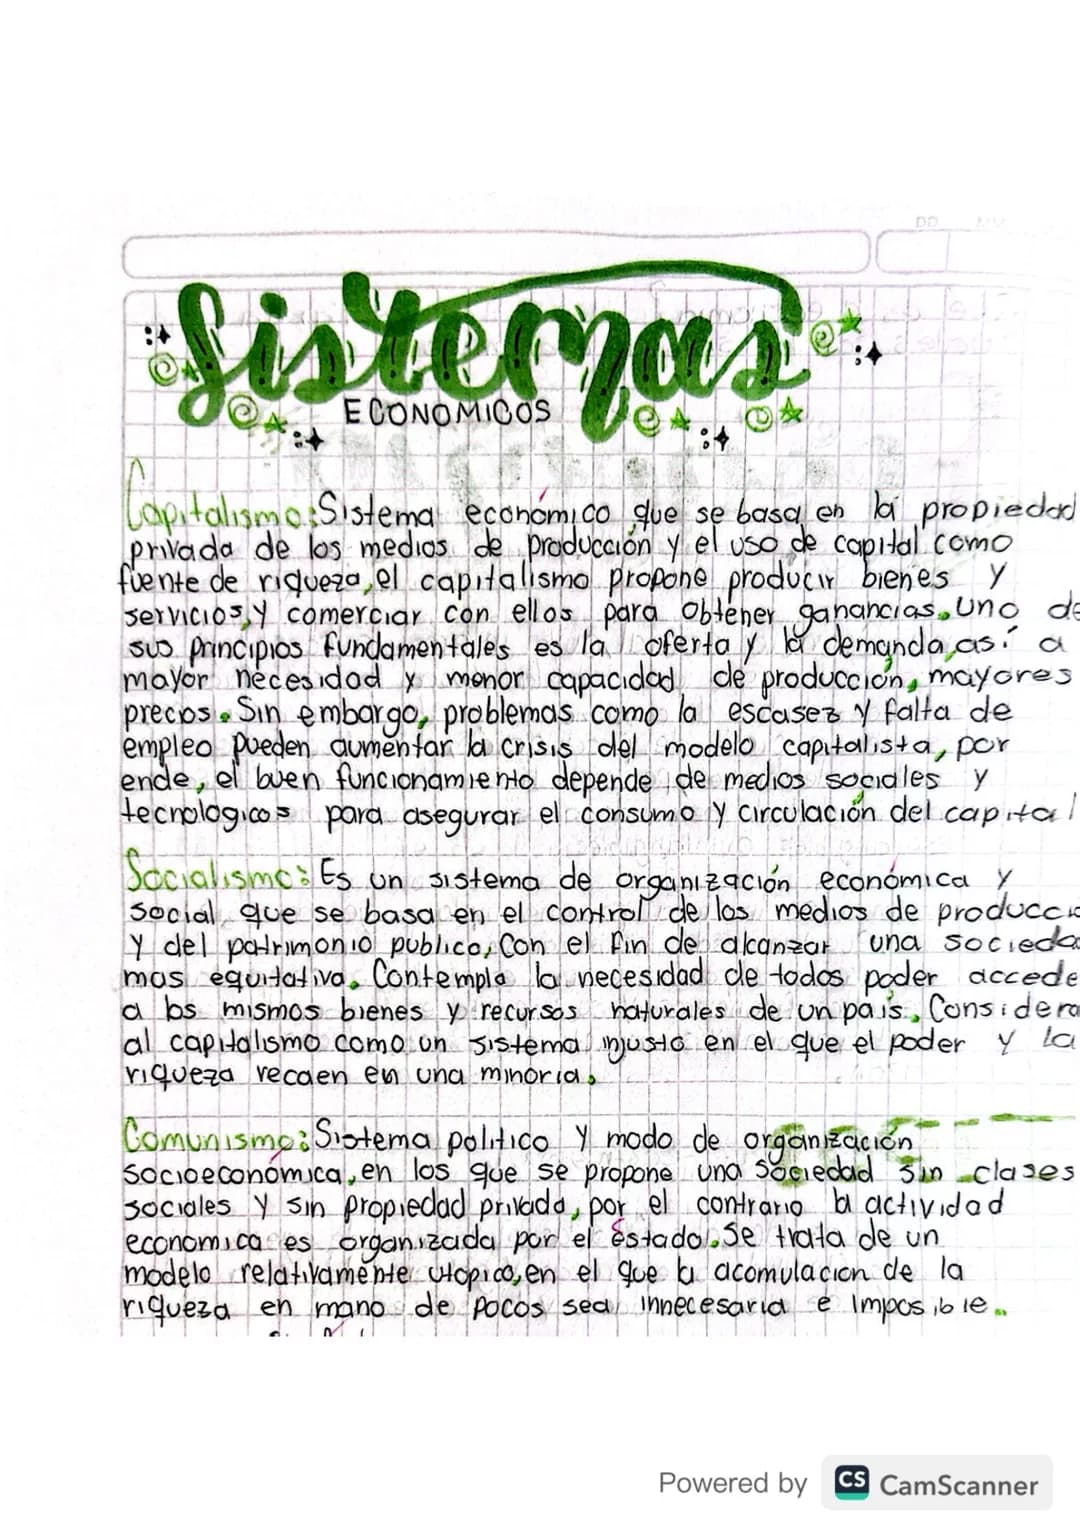 Sistemas
ECONOMICOS
Capitalismo: Sistema económico que se basa en la propiedad
privada de los medios de producción y el uso de capital como
fuente de riqueza, el capitalismo propone producir bienes y
servicios, y comerciar con ellos para obtener ganancias. Uno de
sus principios fundamentales es la oferta y la demanda, así a
mayor necesidad y menor capacidad de producción, mayores
precios. Sin embargo, problemas como la escasez y falta de
empleo pueden aumentar la crisis del modelo capitalista, por
ende, el buen funcionamiento depende de medios sociales y
tecnologicos para asegurar el consumo y circulación del capital
Socialismo: Es un sistema de organización económica y
social que se basa en el control de los medios de producció
y del patrimonio publico, con el fin de alcanzar una socieda
mas equitativa. Contempla la necesidad de todos poder accede
a los mismos bienes y recursos naturales de un país. Considera
al capitalismo como un sistema injusto en el que el poder y la
riqueza recaen en una minoria.
Comunismo: Sistema politico y modo de organización
socioeconómica, en los que se propone una sociedad sin clases
sociales y sin propiedad privada, por el contrario la actividad
economica es organizada por el Estado. Se trata de un
modelo relativamente utopico, en el que la acomulacion de la
riqueza en mano de pocos sea innecesaria e imposible.
Powered by CS CamScanner